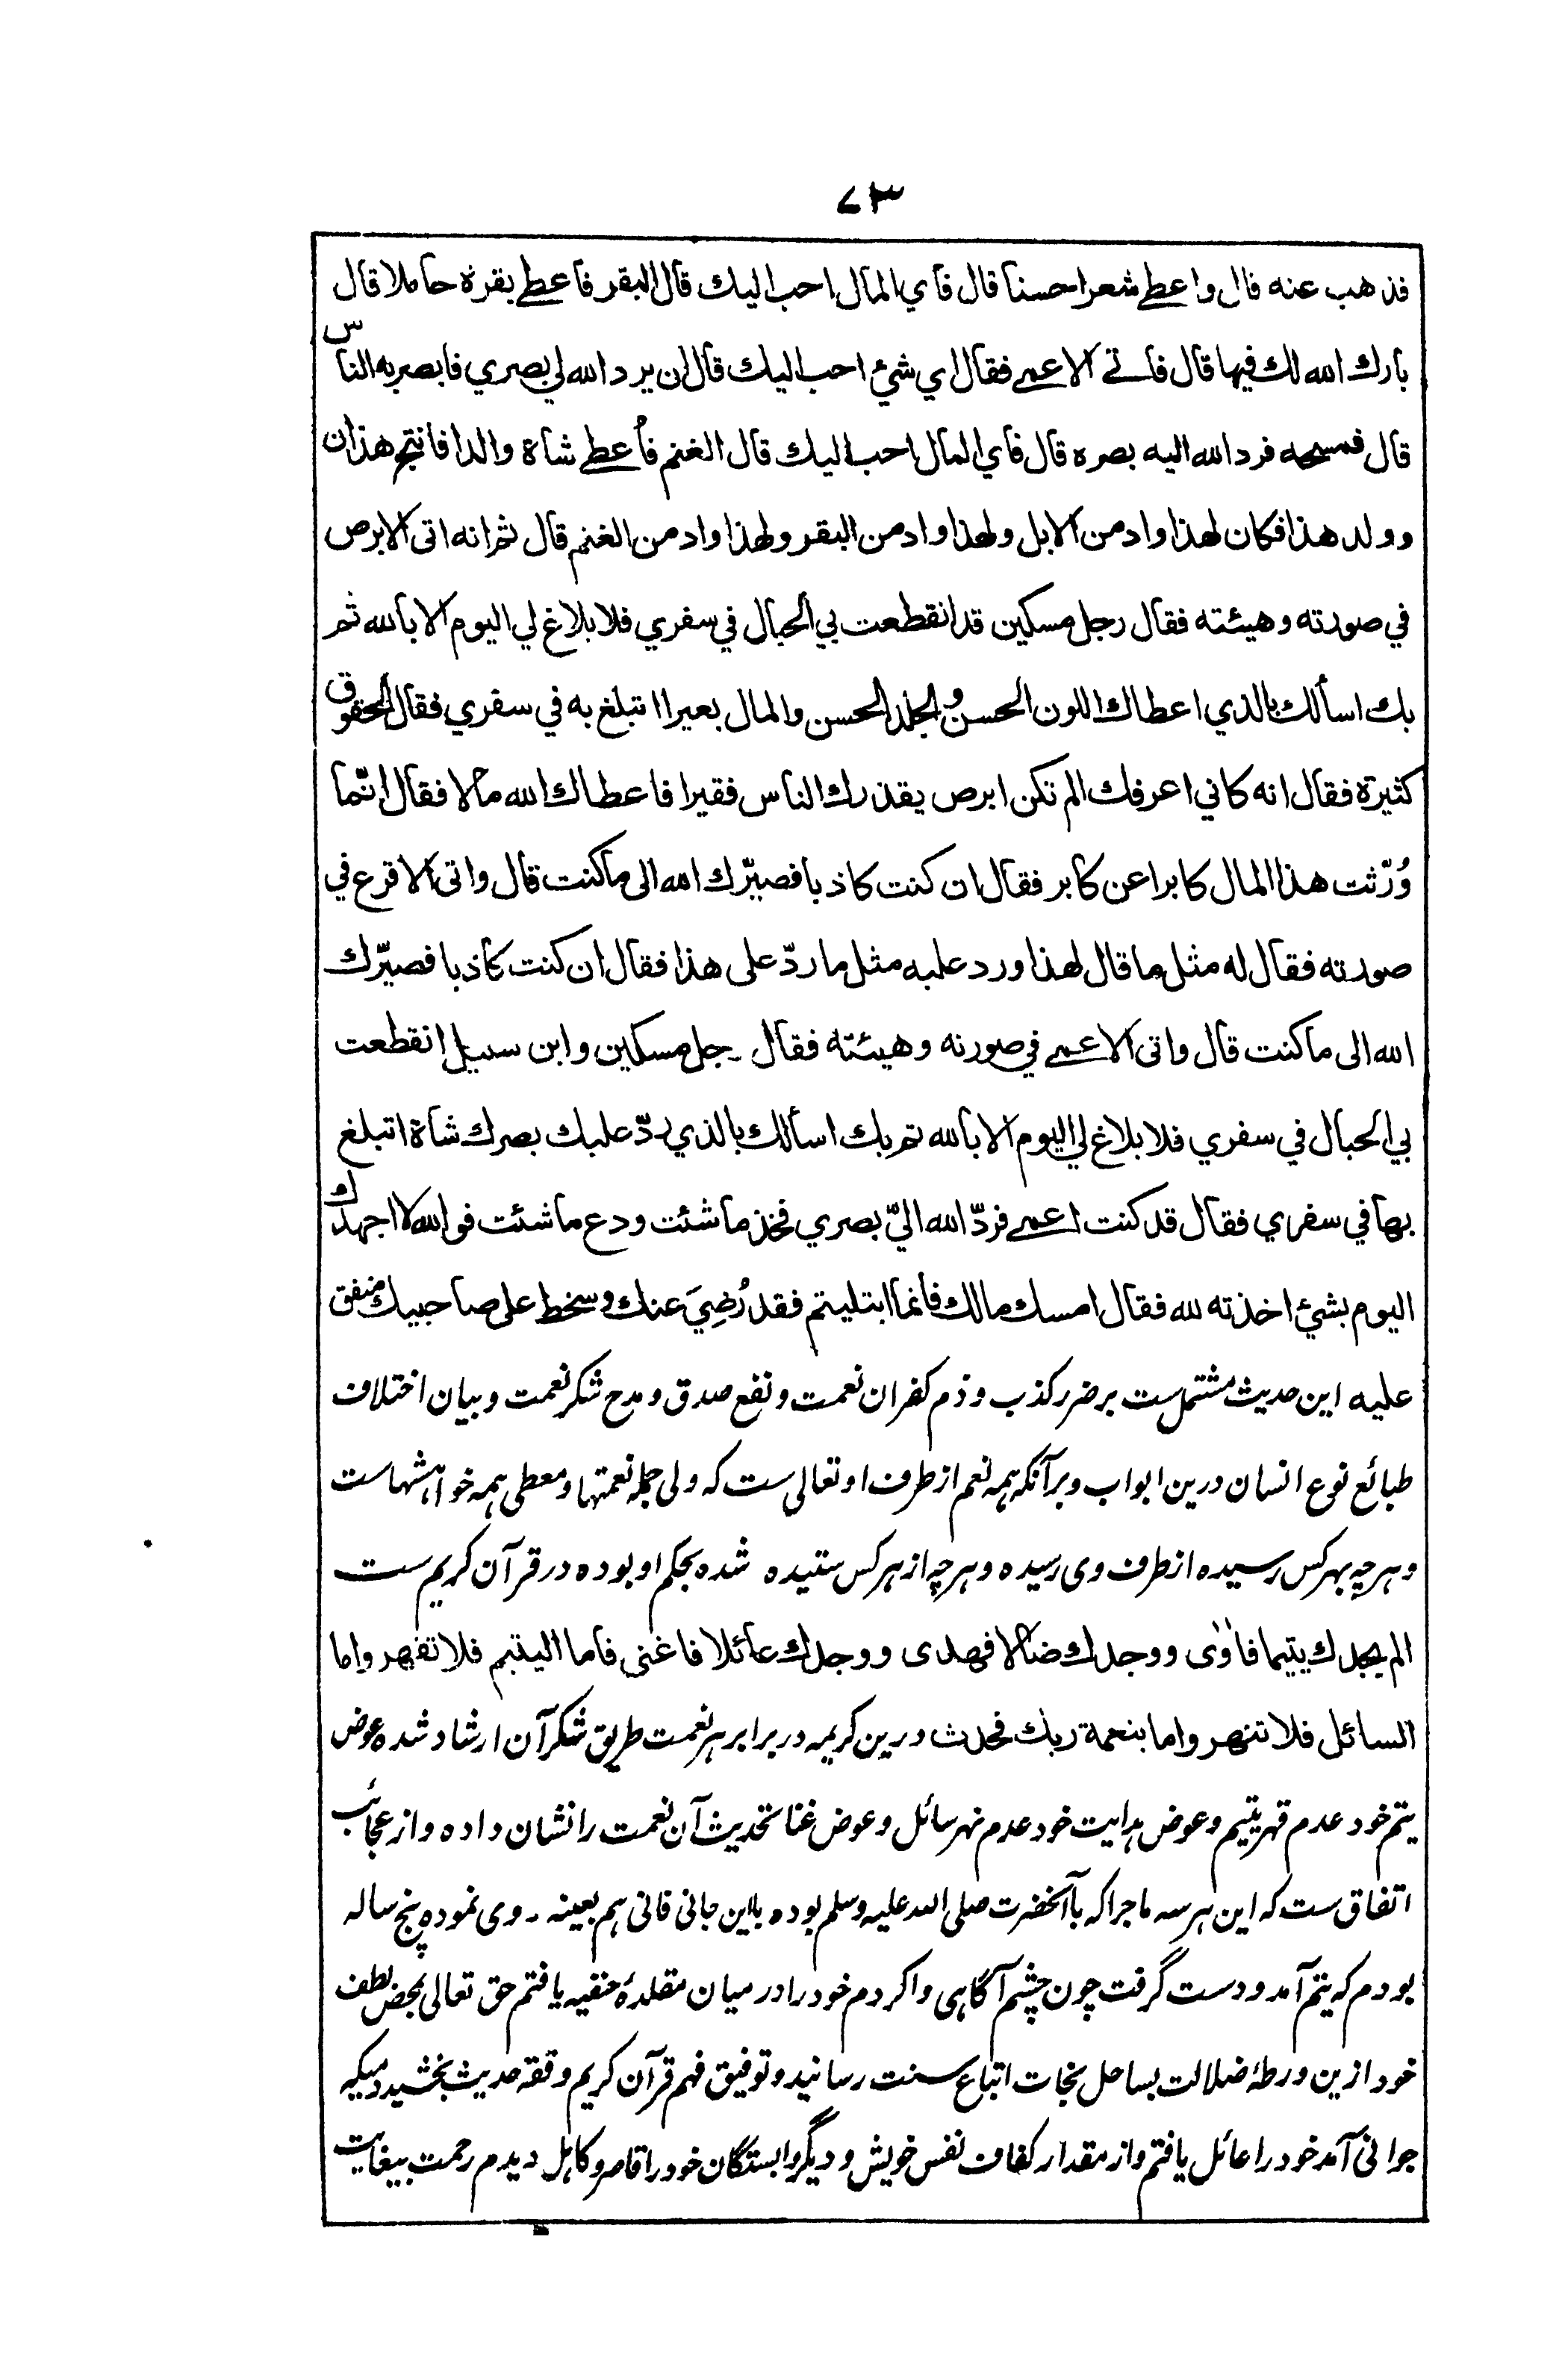 ۷۳
فذهب عنه قال واعطي شعرا حسنا قال فأي المال احب اليك قال البقر فاعطي بقرة حاملا قال
بارك الله لك فيها قال فاتى الاعمى فقال اي شئ احب اليك قال ان يرد الله لي بصري فابصر به الناس
قال فمسحه فرد الله اليه بصره قال فاي المال احب اليك قال الغنم فأعطي شاة والدا فانتج هذان
وولد هذا فكان لهذا واد من الابل ولهذا واد من البقر ولهذا واد من الغنم قال ثم انه اتى الابرص
في صورته وهيئته فقال رجل مسكين قد انقطعت بي الحبال في سفري فلا بلاغ لي اليوم الا بالله ثم
بك اسألك بالذي اعطاك اللون الحسن والجلد الحسن والمال بعيرا اتبلغ به في سفري فقال الحقوق
كثيرة فقال انه كاني اعرفك الم تكن ابرص يقذرك الناس فقيرا فاعطاك الله مالا فقال انّما
وُرّثت هذا المال كابرا عن كابر فقال ان كنت كاذبا فصيّرك الله الى ما كنت قال واتى الاقرع في
صورته فقال له مثل ما قال لهذا ورد عليه مثل ما ردّ على هذا فقال ان كنت كاذبا فصيّرك
الله الى ما كنت قال واتى الاعمى في صورته وهيئته فقال رجل مسكين وابن سبيل انقطعت
بي الحبال في سفري فلا بلاغ لي اليوم الا بالله ثم بك اسألك بالذي ردّ عليك بصرك شاة اتبلغ
بها في سفري فقال قد كنت اعمى فردّ الله اليّ بصري فخذ ما شئت ودع ما شئت فوالله لا اجهدك
اليوم بشئ اخذته لله فقال امسك مالك فانما ابتليتم فقد رُضِيَ عنك وسخط على صاحبيك متفق
عليه این حدیث مشتمل ست بر ضرر کذب و ذم کفران نعمت و نفع صدق و مدح شکر نعمت و بیان اختلاف
طبائع نوع انسان درین ابواب و بر آنکه همه نعم از طرف او تعالی ست که ولی جمله نعمتها و معطی همه خواهشهاست
و هرچه بهر کس رسیده از طرف وی رسیده و هرچه از هر کس ستیده شده بحکم او بوده در قرآن کریم ست
الم يجدك يتيما فاٰوٰى ووجدك ضالا فهدى ووجدك عائلا فاغنى فاما اليتيم فلا تقهر واما
السائل فلا تنهر واما بنعمة ربك فحدث درین کریمه در برابر هر نعمت طریق شکر آن ارشاد شده عوض
یتم خود عدم قهر یتیم و عوض هدایت خود عدم نهر سائل و عوض غنا تحدیث آن نعمت را نشان داده و از عجائب
اتفاق ست که این هر سه ماجرا که بآنحضرت صلی الله علیه وسلم بوده باین جانی فانی هم بعینه روی نموده پنج ساله
بودم که یتم آمد و دست گرفت چون چشم آگاهی وا کردم خود را در میان مقلدۀ حنفیه یافتم حق تعالی بمحض لطف
خود ازین ورطۀ ضلالت بساحل نجات اتباع سنت رسانید و توفیق فهم قرآن کریم و فقه حدیث بخشید دمیکه
جوانی آمد خود را عائل یافتم و از مقدار کفاف نفس خویش و دیگر وابستگان خود را قاصر و کاهل دیدم رحمت بیغایت